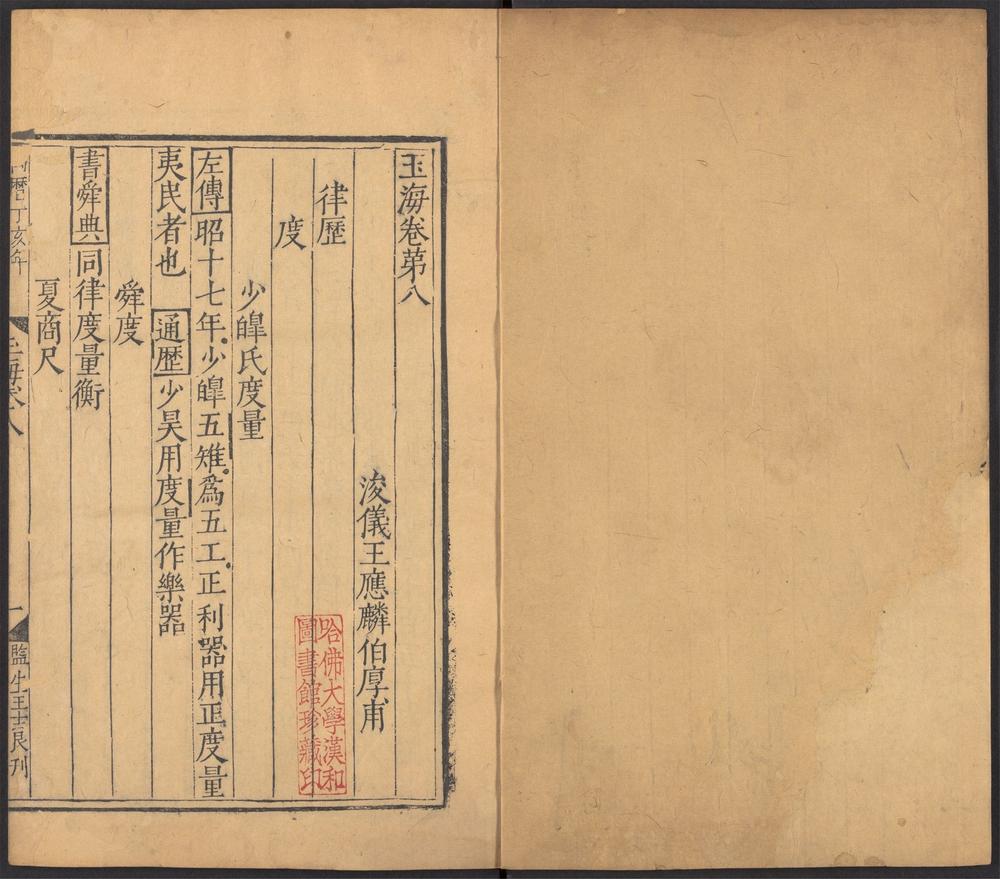 玉海卷苐八
浚儀王應麟伯厚甫
律歷
度
少皥氏度量
左傳昭十七年少皥五雉爲五工正利器用正度量
夷民者也 通歷少昊用度量作樂器
舜度
書舜典同律度量衡
夏商尺
曆丁亥年
玉海卷八
一
監生王良刊
哈佛大學漢和
圖書館珍藏印